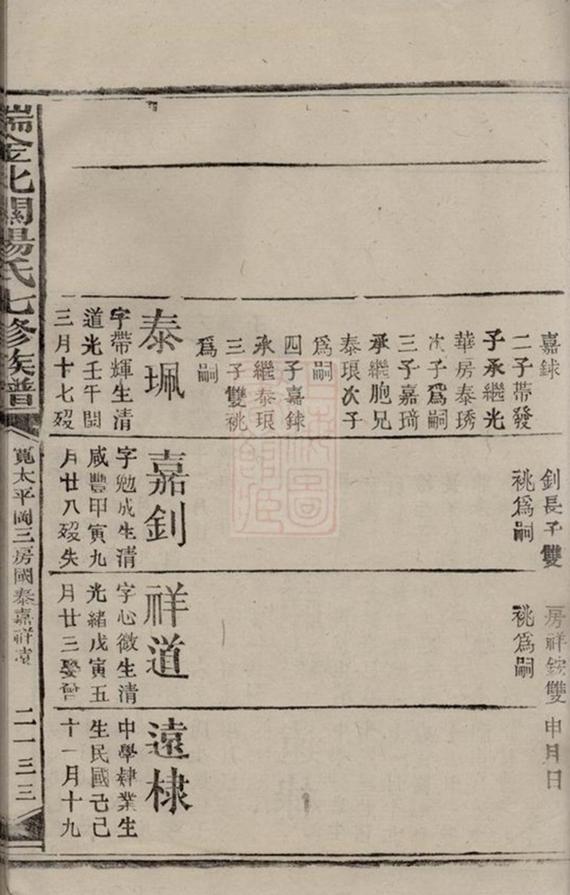 嘉銶
二子帶發
子承繼光
華房泰琇
次子爲嗣
三子嘉琦
承繼胞兄
泰琅次子
爲嗣
四子嘉銶
承繼泰琅
三子雙祧
爲嗣
泰珮
字帶輝生清
道光壬午閏
三月十七歿
釗長子雙
祧爲嗣
嘉釗
字勉成生清
咸豐甲寅九
月廿八歿失
房祥銨雙
祧爲嗣
祥道
字心微生清
光緒戊寅五
月廿三娶曾
申月日
遠棣
中學肄業生
生民國己巳
十一月十九
瑞金北關楊氏七修族譜
寬太平岡三房國泰嘉祥遠
二一三三